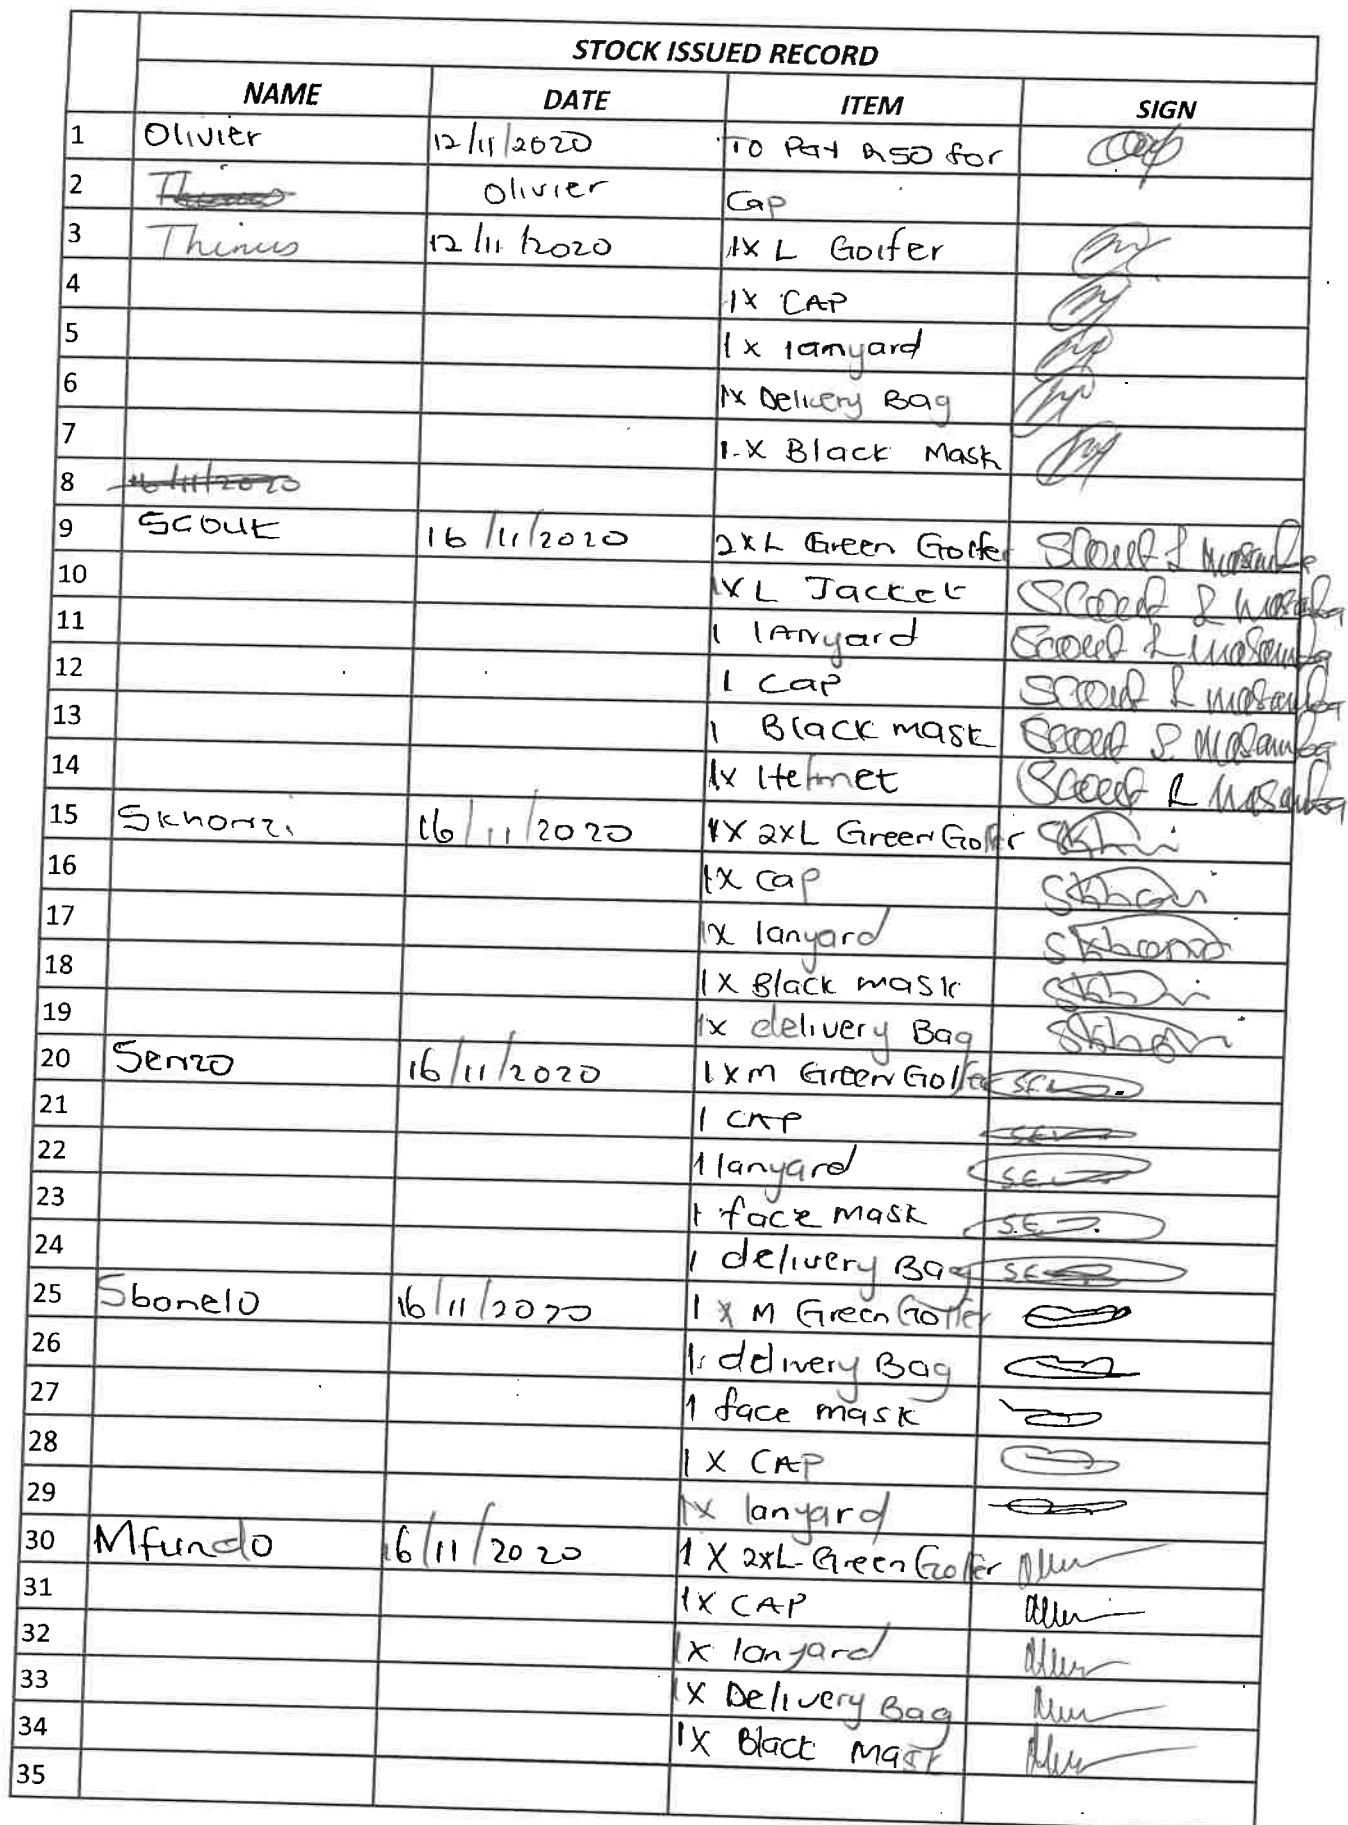 STOCK ISSUED RECORD
NAME DATE ITEM SIGN
1 Olivier 12/11/2020 To Pay R50 for
2 Thinus Olivier Cap
3 Thinus 12/11/2020 1x L Golfer
4 1x CAP
5 1x lanyard
6 1x Delivery Bag
7 1.X Black Mask
8 16/11/2020
9 Scout 16/11/2020 2xL Green Golfer Scout
10 1xL Jacket Scout
11 1 lanyard Scout
12 1 Cap Scout
13 1 Black mask Scout
14 1x Helmet Scout
15 Skhonzi 16/11/2020 1X 2xL Green Golfer
16 1X cap
17 1x lanyard
18 1X Black mask
19 1x delivery Bag
20 Senzo 16/11/2020 1XM Green Golfer
21 1 CAP
22 1 lanyard
23 1 face mask
24 1 delivery Bag
25 Sbonelo 16/11/2020 1 x M Green Golfer
26 1 delivery Bag
27 1 face mask
28 1 X CAP
29 1x lanyard
30 Mfundo 16/11/2020 1 X 2xL Green Golfer
31 1X CAP
32 1x lanyard
33 1X Delivery Bag
34 1X Black Mask
35